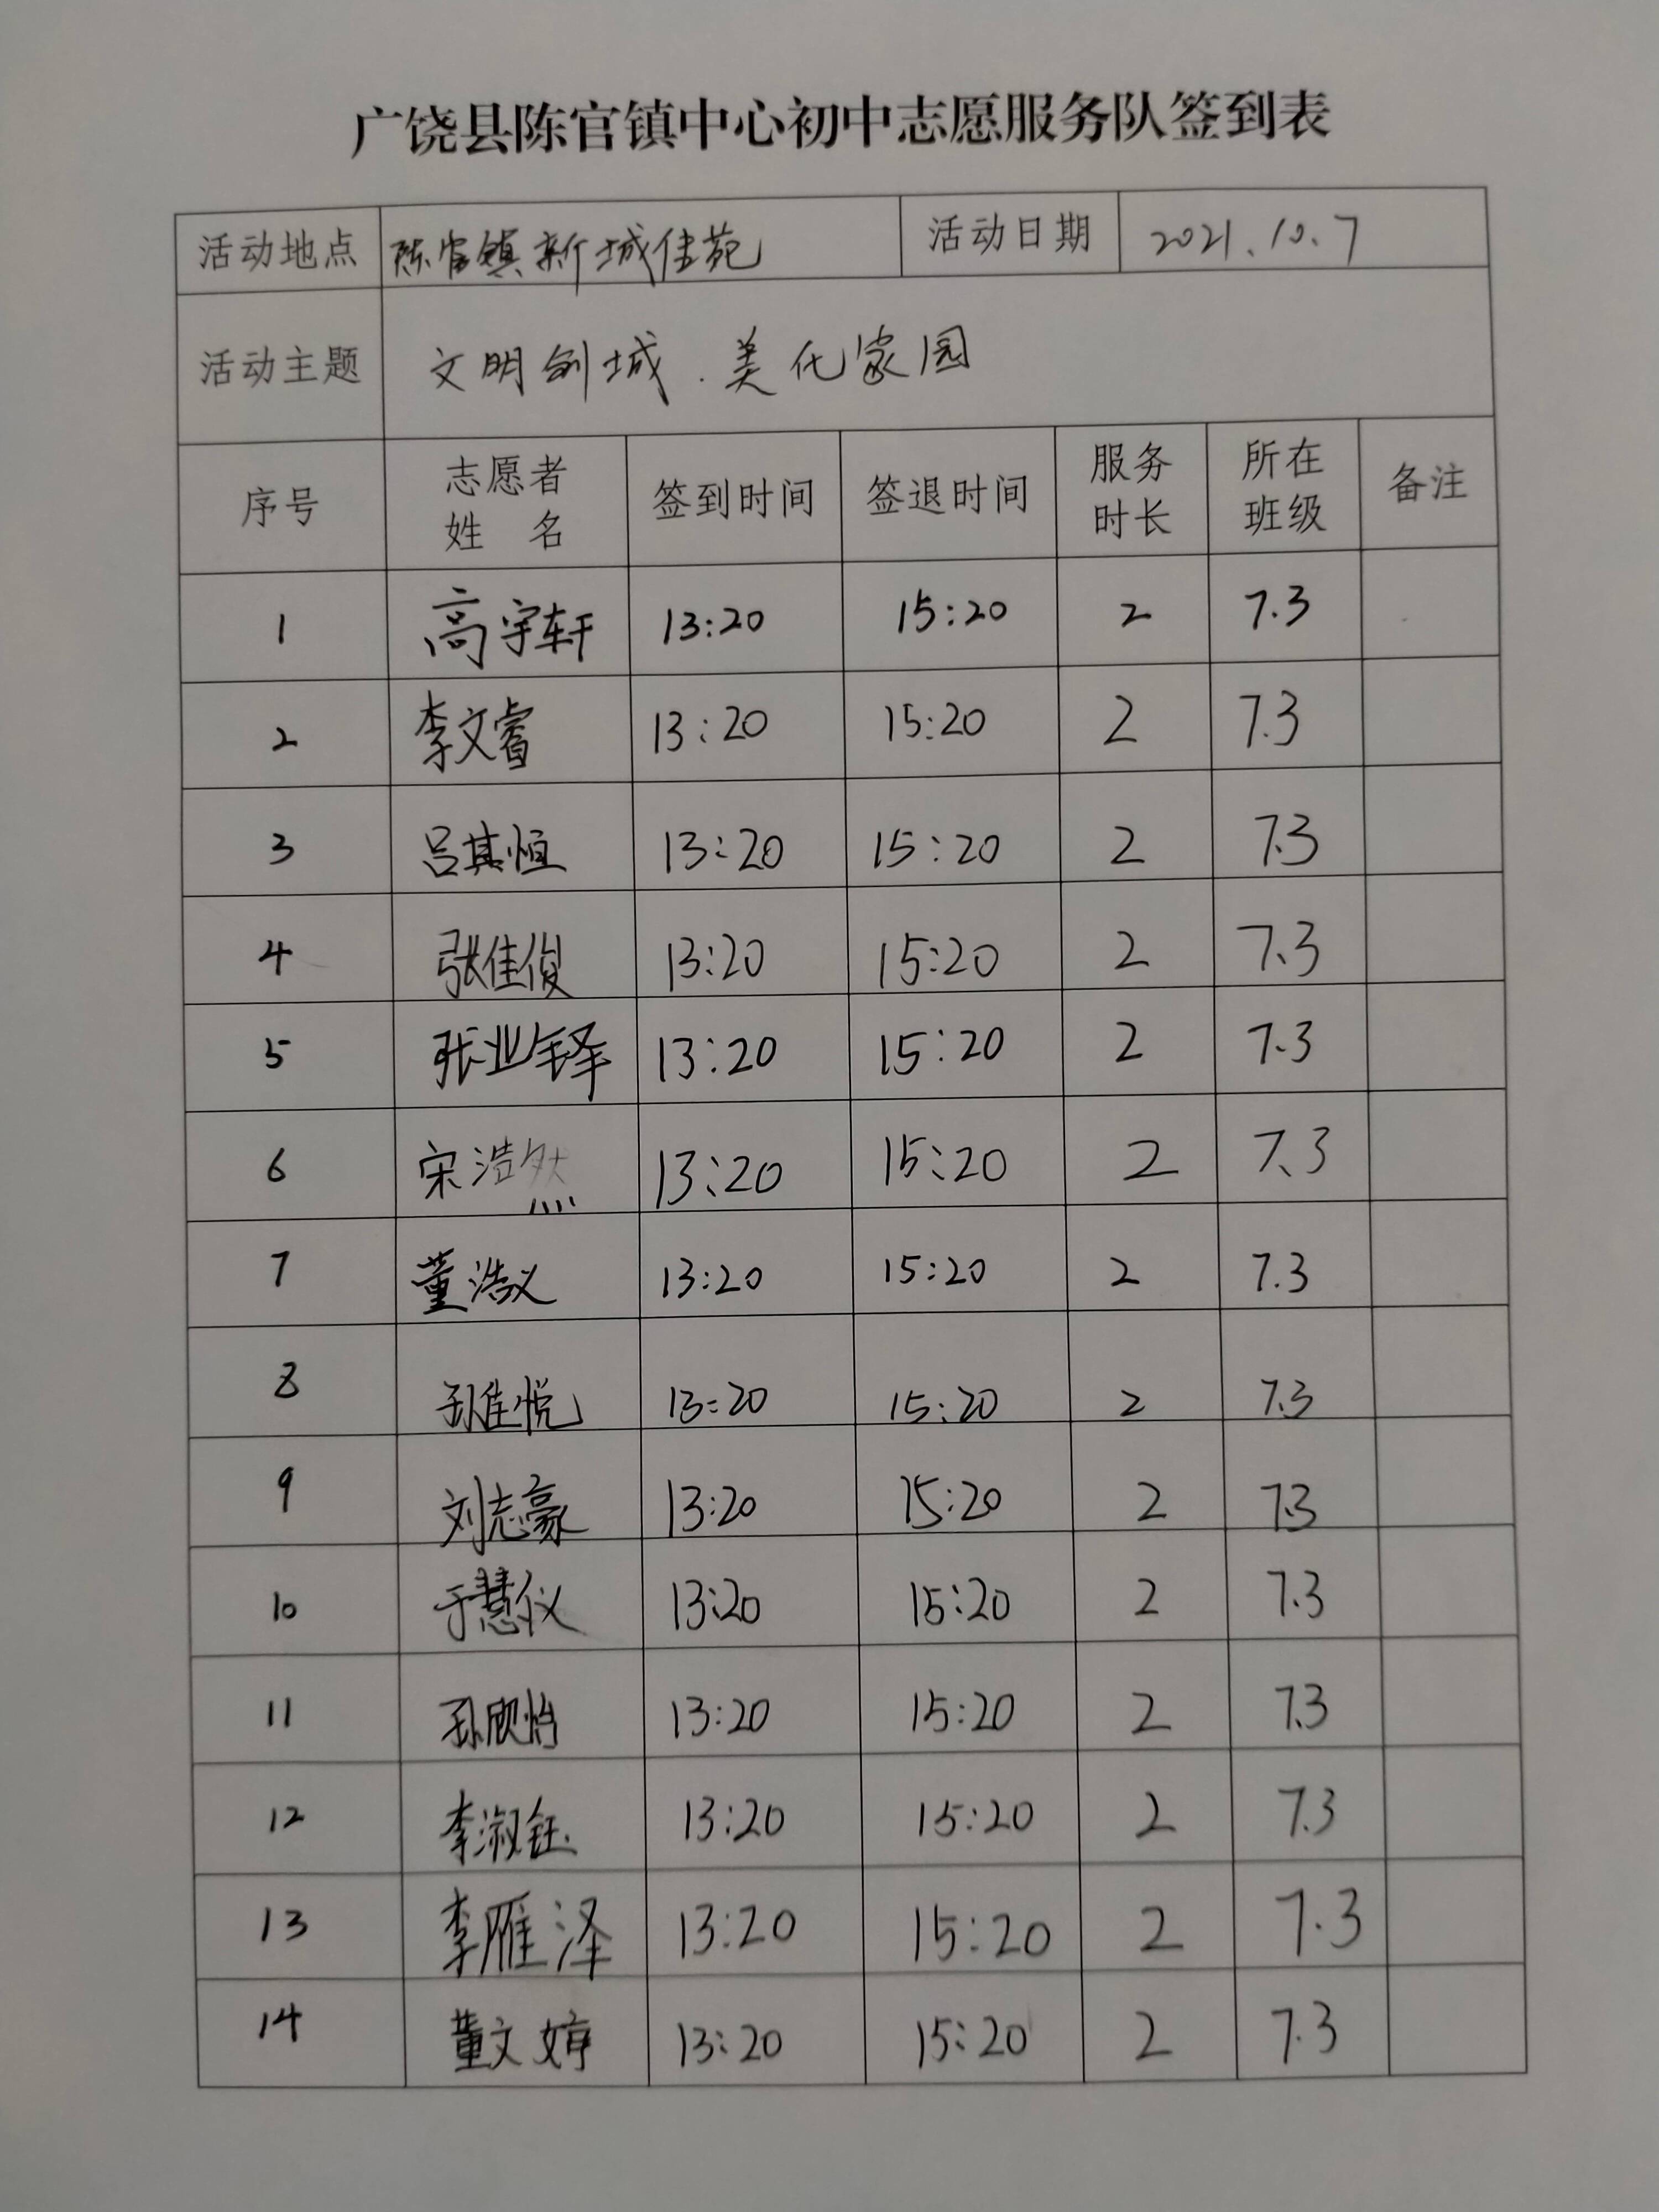 广饶县陈官镇中心初中志愿服务队签到表
活动地点 陈官镇新城佳苑 活动日期 2021.10.7
活动主题 文明创城.美化家园
序号 志愿者姓名 签到时间 签退时间 服务时长 所在班级 备注
1 高宇轩 13:20 15:20 2 7.3
2 李文睿 13:20 15:20 2 7.3
3 吕其恒 13:20 15:20 2 7.3
4 张佳俊 13:20 15:20 2 7.3
5 张业铎 13:20 15:20 2 7.3
6 宋浩然 13:20 15:20 2 7.3
7 董浩义 13:20 15:20 2 7.3
8 孙佳悦 13:20 15:20 2 7.3
9 刘志豪 13:20 15:20 2 7.3
10 于慧仪 13:20 15:20 2 7.3
11 孙欣怡 13:20 15:20 2 7.3
12 李淑钰 13:20 15:20 2 7.3
13 李雁泽 13:20 15:20 2 7.3
14 董文婷 13:20 15:20 2 7.3